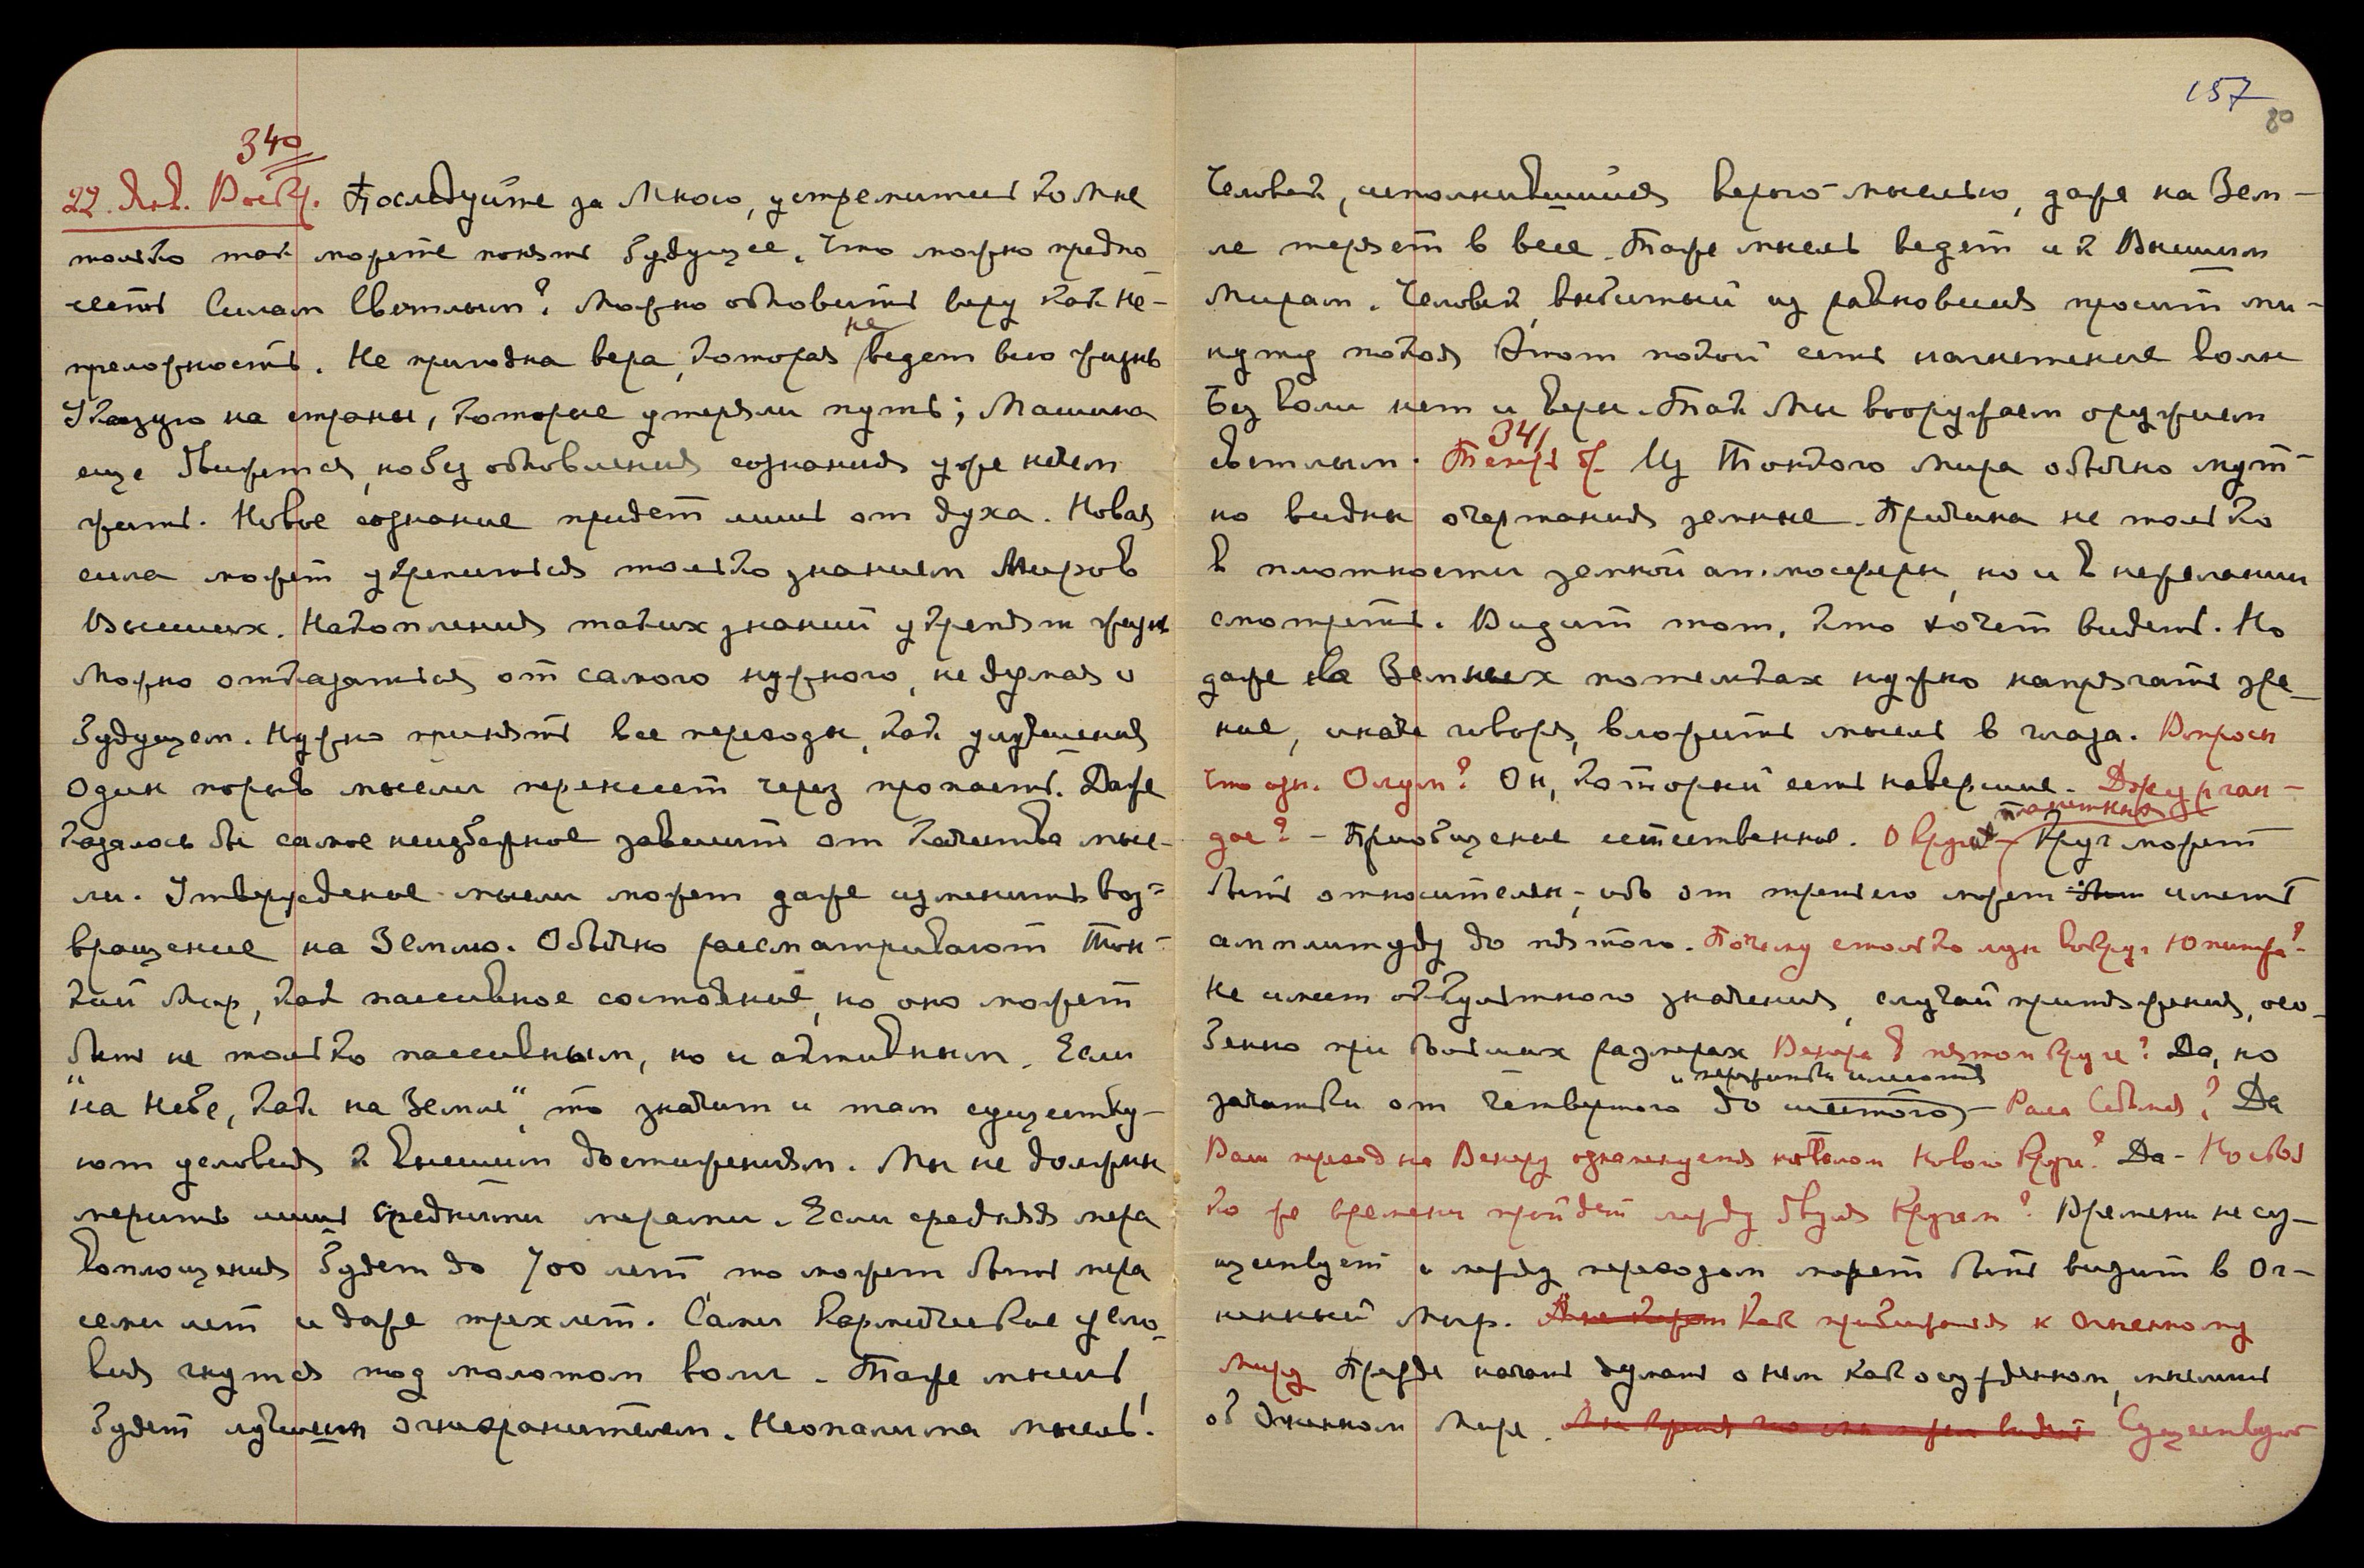 157
80
340
22. Янв. Воскр. Последуйте за Мною, устремитесь ко Мне
только так можете понять будущее. Что можно предпо-
честь Силам Светлым? Можно обновить веру как не-
преложность. Не пригодна вера, которая не ведет всю жизнь
Указую на страны, которые утеряли путь; Машина
еще движется, но без обновления сознания уже нечем
жить. Новое сознание придет лишь от духа. Новая
сила может укрепиться только знанием Миров
Высших. Накопления таких знаний укрепят жизнь
Можно отказаться от самого нужного, не думая о
будущем. Нужно принять все переходы, как улучшения
Один порыв мысли перенесет через пропасть. Даже
казалось бы самое неизбежное зависит от качества мыс-
ли. Утверждение мысли может даже изменить воз-
вращение на Землю. Обычно рассматривают Тон-
кий Мир, как пассивное состояние, но оно может
быть не только пассивным, но и активным. Если
"на Небе, как на Земле", то значит и там существу-
ют условия к высшим достижениям. Мы не должны
мерить лишь средними мерами. Если средняя мера
воплощения будет до 700 лет то может быть мера
семи лет и даже трех лет. Сами кармические усло-
вия гнутся под молотом воли. Также мысль
будет лучшим огнехранителем. Неопалима мысль!
Человек, исполнившийся верою-мыслью, даже на Зем-
ле теряет в весе. Также мысль ведет и к Высшим
Мирам. Человек, выбитый из равновесия просит ми-
нуту покоя Этот покой есть нагнетение воли
Без воли нет и веры. Так Мы вооружаем оружием
светлым. 341 Теперь др. Из Тонкого Мира обычно мут-
но видны очертания земные. Причина не только
в плотности земной атмосферы, но и в нежелании
смотреть. Видит тот, кто хочет видеть. Но
даже на Земных потемках нужно напрягать зре-
ние, иначе говоря, вложить мысль в глаза. Вопросы
что озн. Олум? Он, который есть навершие. Джурган-
дое? - Приобщение естественное. О Кругах планетных - Круг может
быть относителен, ибо от третьего может быть иметь
амплитуду до пятого. Почему столько лун вокруг Юпитера?
Не имеет оккультного значения, случай притяжения, осо-
бенно при больших размерах Венера в пятом Круге? Да, но
зачатки и пережитки имеются от четвертого до шестого - Раса Седьмая? Да
Ваш переход на Венеру ознаменуется началом Нового Круга? Да - Но сколь
ко же времени пройдет между двумя Кругами? Времени не су-
ществует и между переходом может быть визит в Ог-
ненный Мир. Как приблизиться к Огненному
Миру Прежде начать думать о нем как о сужденном, мыслить
об Огненном Мире. Существует